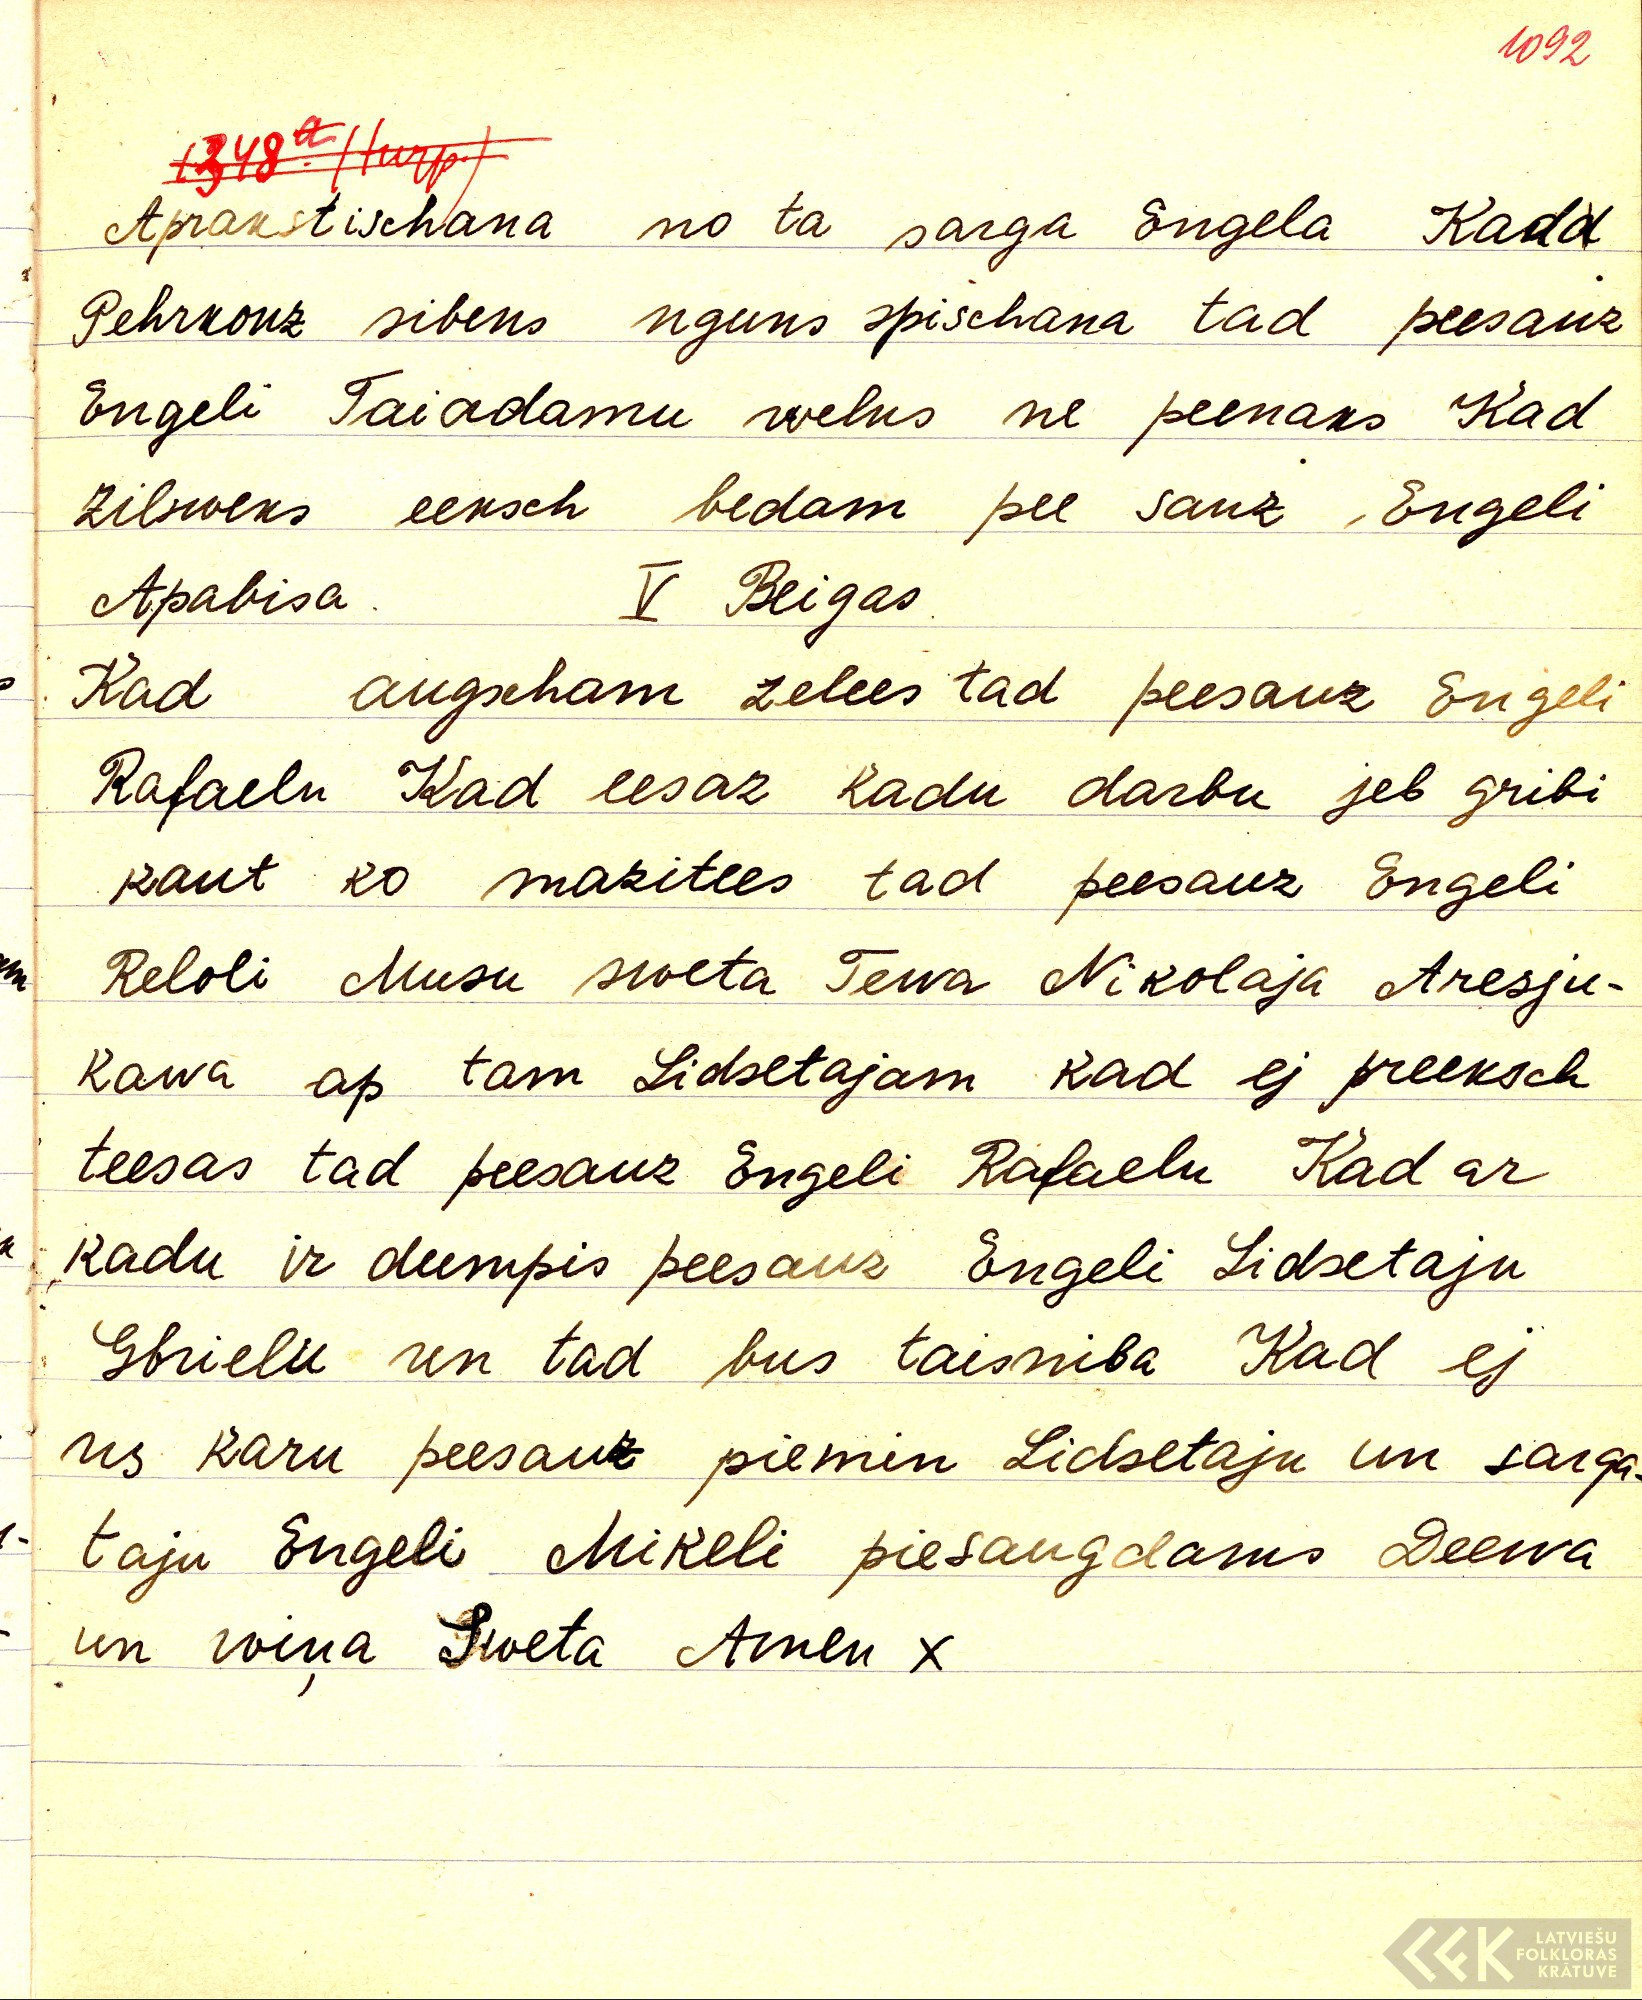 1092
1348a. (turp.)
Aprakstischana no ta sarga Engela Kadd
Pehrkonz sibens uguns spischana tad peesauz
Engeli Taiadamu welns ne peenaks Kad
Zilsweks eeksch bedam pee sauz Engeli
Apabisa. V Beigas.
Kad augscham zelees tad peesauz Engeli
Rafaelu Kad eesaz kadu darbu jeb gribi
kaut ko mazitees tad peesauz Engeli
Reloli Musu sweta Tewa Nikolaja Aresju-
kawa ap tam Lidsetajam kad ej preeksch
teesas tad peesauz Engeli Rafaelu Kad ar
kadu ir dumpis peesauz Engeli Lidsetaju
Gbrielu un tad bus taisniba Kad ej
us karu peesauz piemin Lidsetaju un sarga-
taju Engeli Mikeli piesaugdams Deewa
un wiņa Sweta Amen x
LATVIEŠU
FOLKLORAS
KRĀTUVE